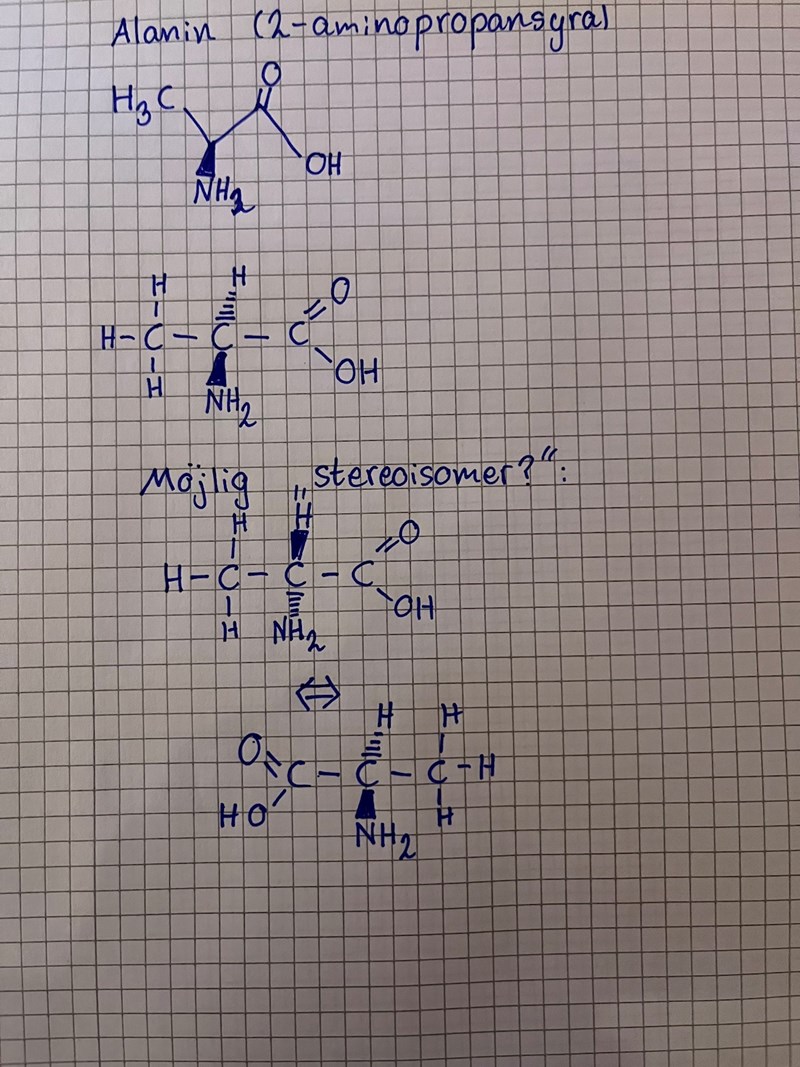 Alanin (2-aminopropansyra)
O
H₃C
OH
NH₂
H H O
H-C-C-C
H NH₂ OH
Möjlig „stereoisomer?“:
H H O
H-C-C-C
H NH₂ OH
⇔
O H H
C-C-C-H
HO NH₂ H